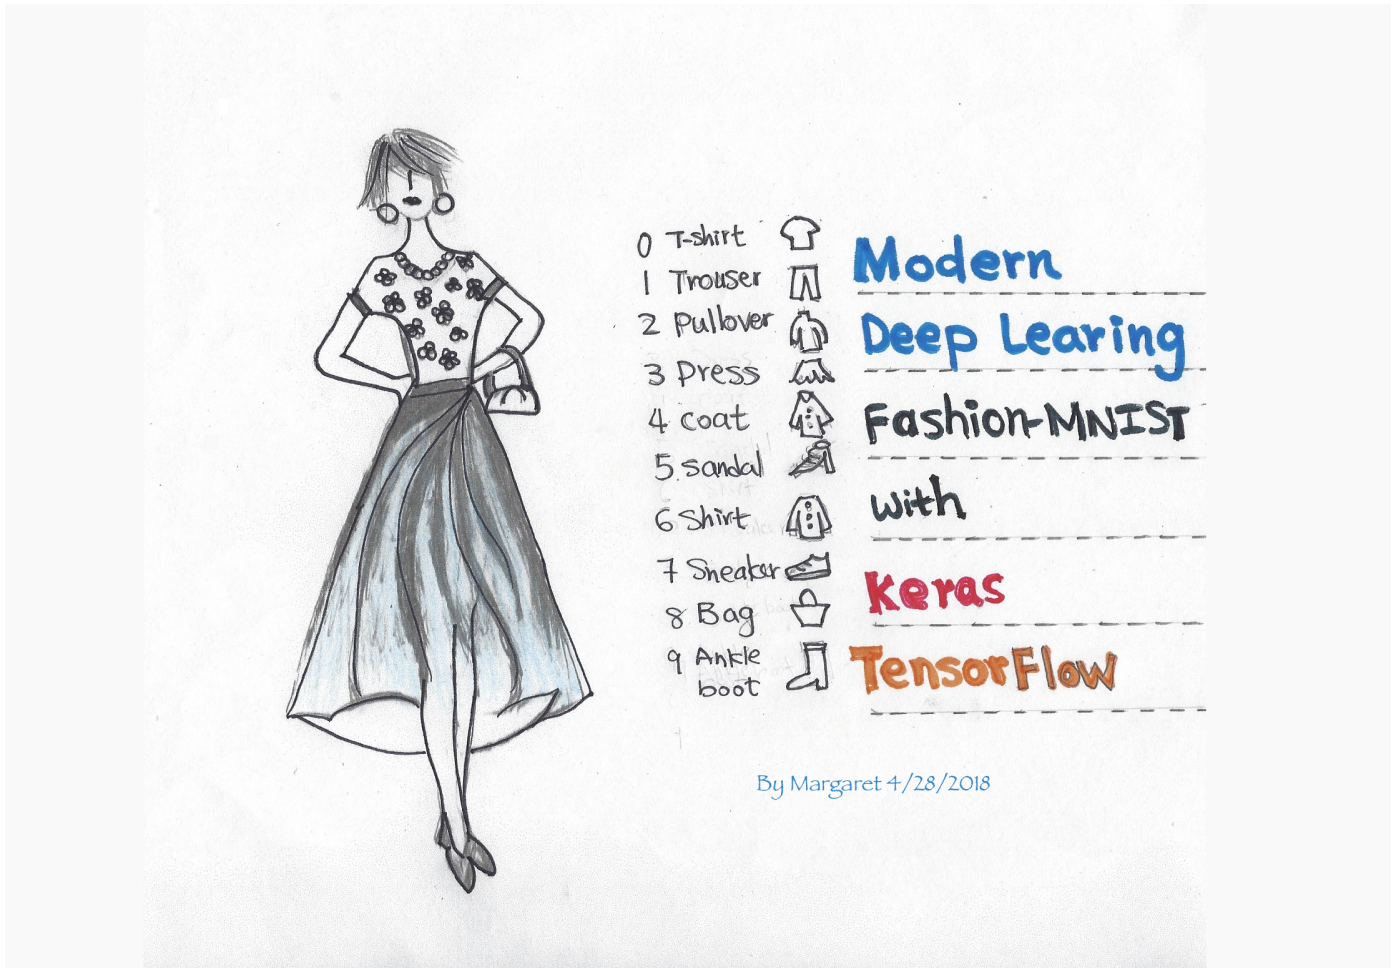 0 T-shirt
1 Trouser
2 Pullover
3 Dress
4 coat
5.sandal
6 Shirt
7 Sneaker
8 Bag
9 Ankle
boot
Modern
Deep Learing
Fashion-MNIST
with
Keras
TensorFlow
By Margaret 4/28/2018